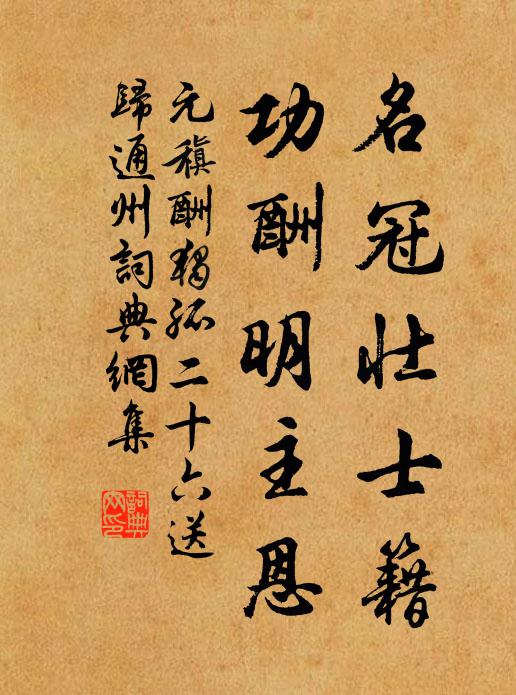 名冠壮士籍
功酬明主恩
元稹酬獨孤二十六送
歸通州詞典網集
詞典網印